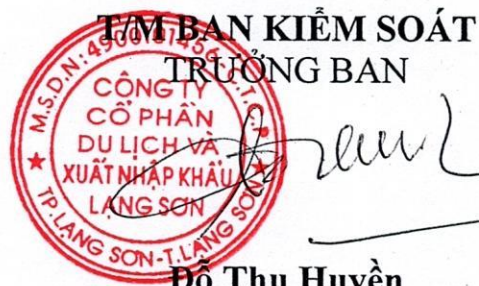 T/M BAN KIỂM SOÁT
TRƯỞNG BAN
M.S.D.N:4900
C.T.C.P
CÔNG TY
CỔ PHẦN
DU LỊCH VÀ
XUẤT NHẬP KHẨU
LẠNG SƠN
TP.LẠNG SƠN-T.LẠNG SƠN
Đỗ Thu Huyền